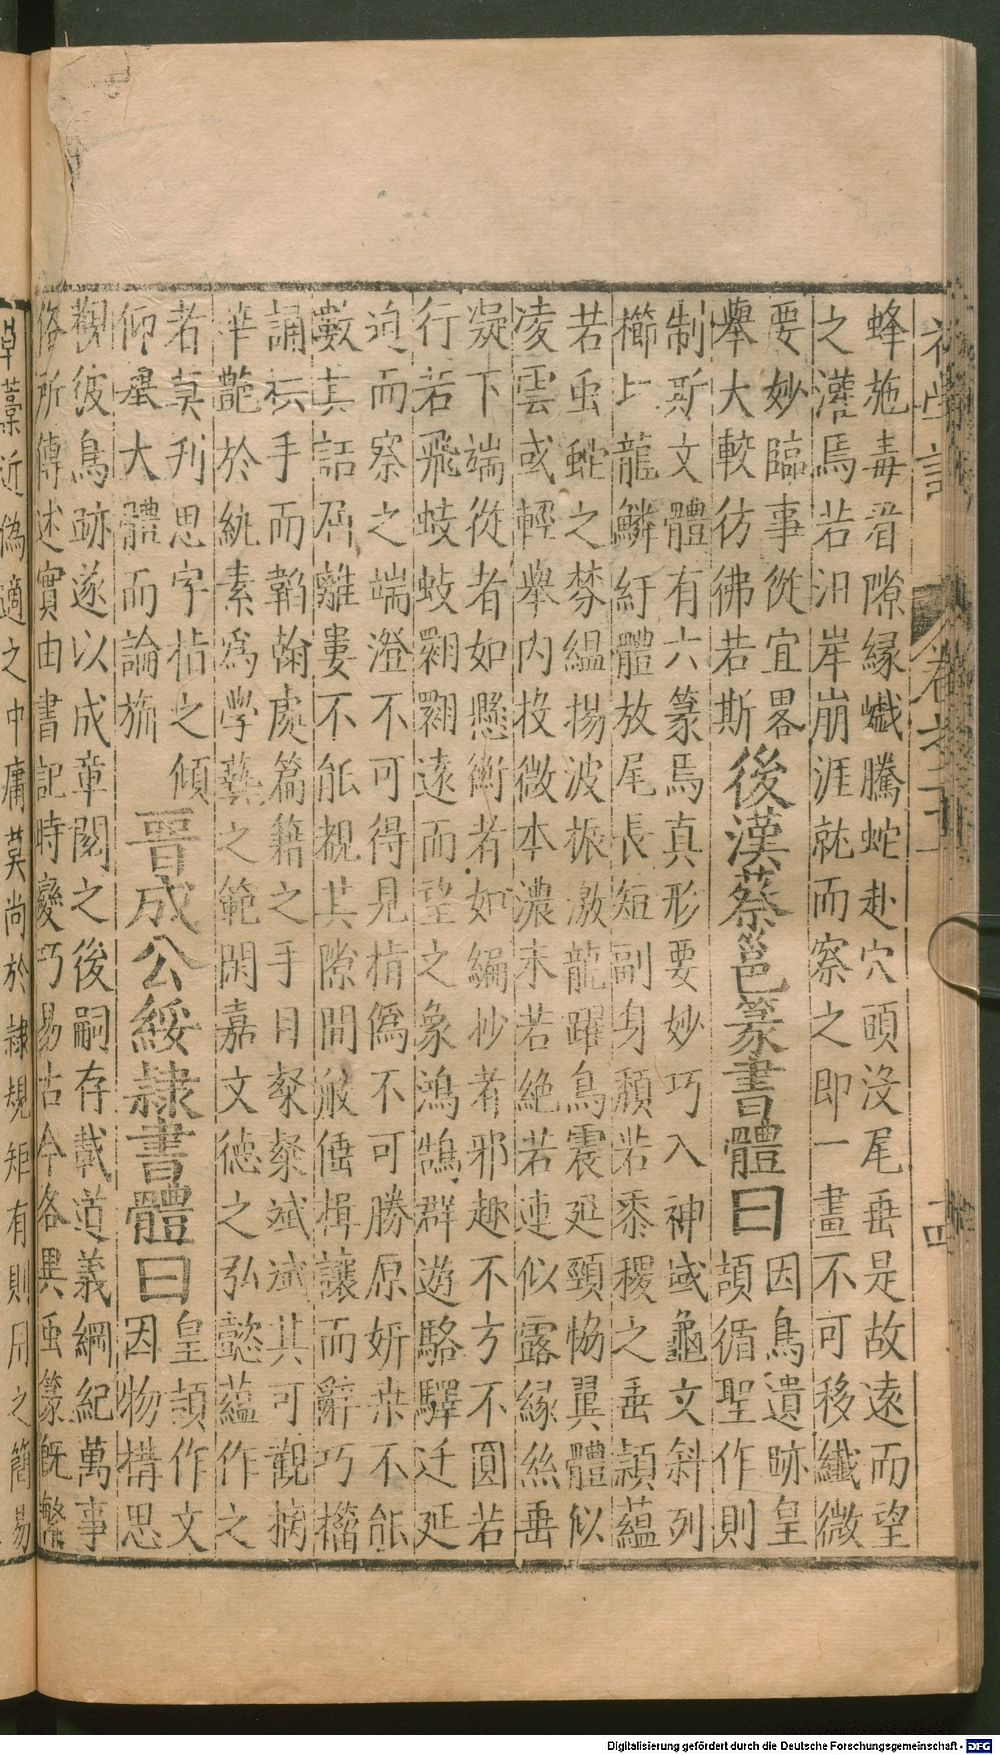 初學記
卷之二十一
十四
蜂施毒看隙緣巇騰蛇赴穴頭沒尾垂是故遠而望
之漼焉若沮岸崩涯就而察之即一畫不可移纖微
要妙臨事從宜畧
舉大較彷彿若斯
後漢蔡邕篆書體曰
因鳥遺跡皇
頡循聖作則
制斯文體有六篆焉真形要妙巧入神或龜文斜列
櫛比龍鱗紆體放尾長短副身頹若黍稷之垂穎蘊
若虫蛇之棼縕揚波振激龍躍鳥震延頸協翼體似
凌雲或輕舉內投微本濃末若絕若連似露緣絲垂
凝下端從者如懸衡者如編杪者邪趣不方不圓若
行若飛蚑蚑翾翾遠而望之象鴻鵠群遊駱驛迁延
迫而察之端澄不可得見指撝不可勝原妍桑不能
數其詰屈離婁不能覩其隙間般倕揖讓而辭巧籀
誦拱手而韜翰處篇籍之手目粲粲斌斌其可觀摛
華豔於紈素為學藝之範閑嘉文德之弘懿蘊作之
者莫刋思字枯之傾
仰舉大體而論旃
晉成公綏隸書體曰
皇頡作文
因物構思
觀彼鳥跡遂以成章閱之後嗣存載道義綱紀萬事
俗所傳述實由書記時變巧易古今各異虫篆既繁
草藁近偽適之中庸莫尚於隸規矩有則用之簡易
Digitalisierung gefördert durch die Deutsche Forschungsgemeinschaft - DFG